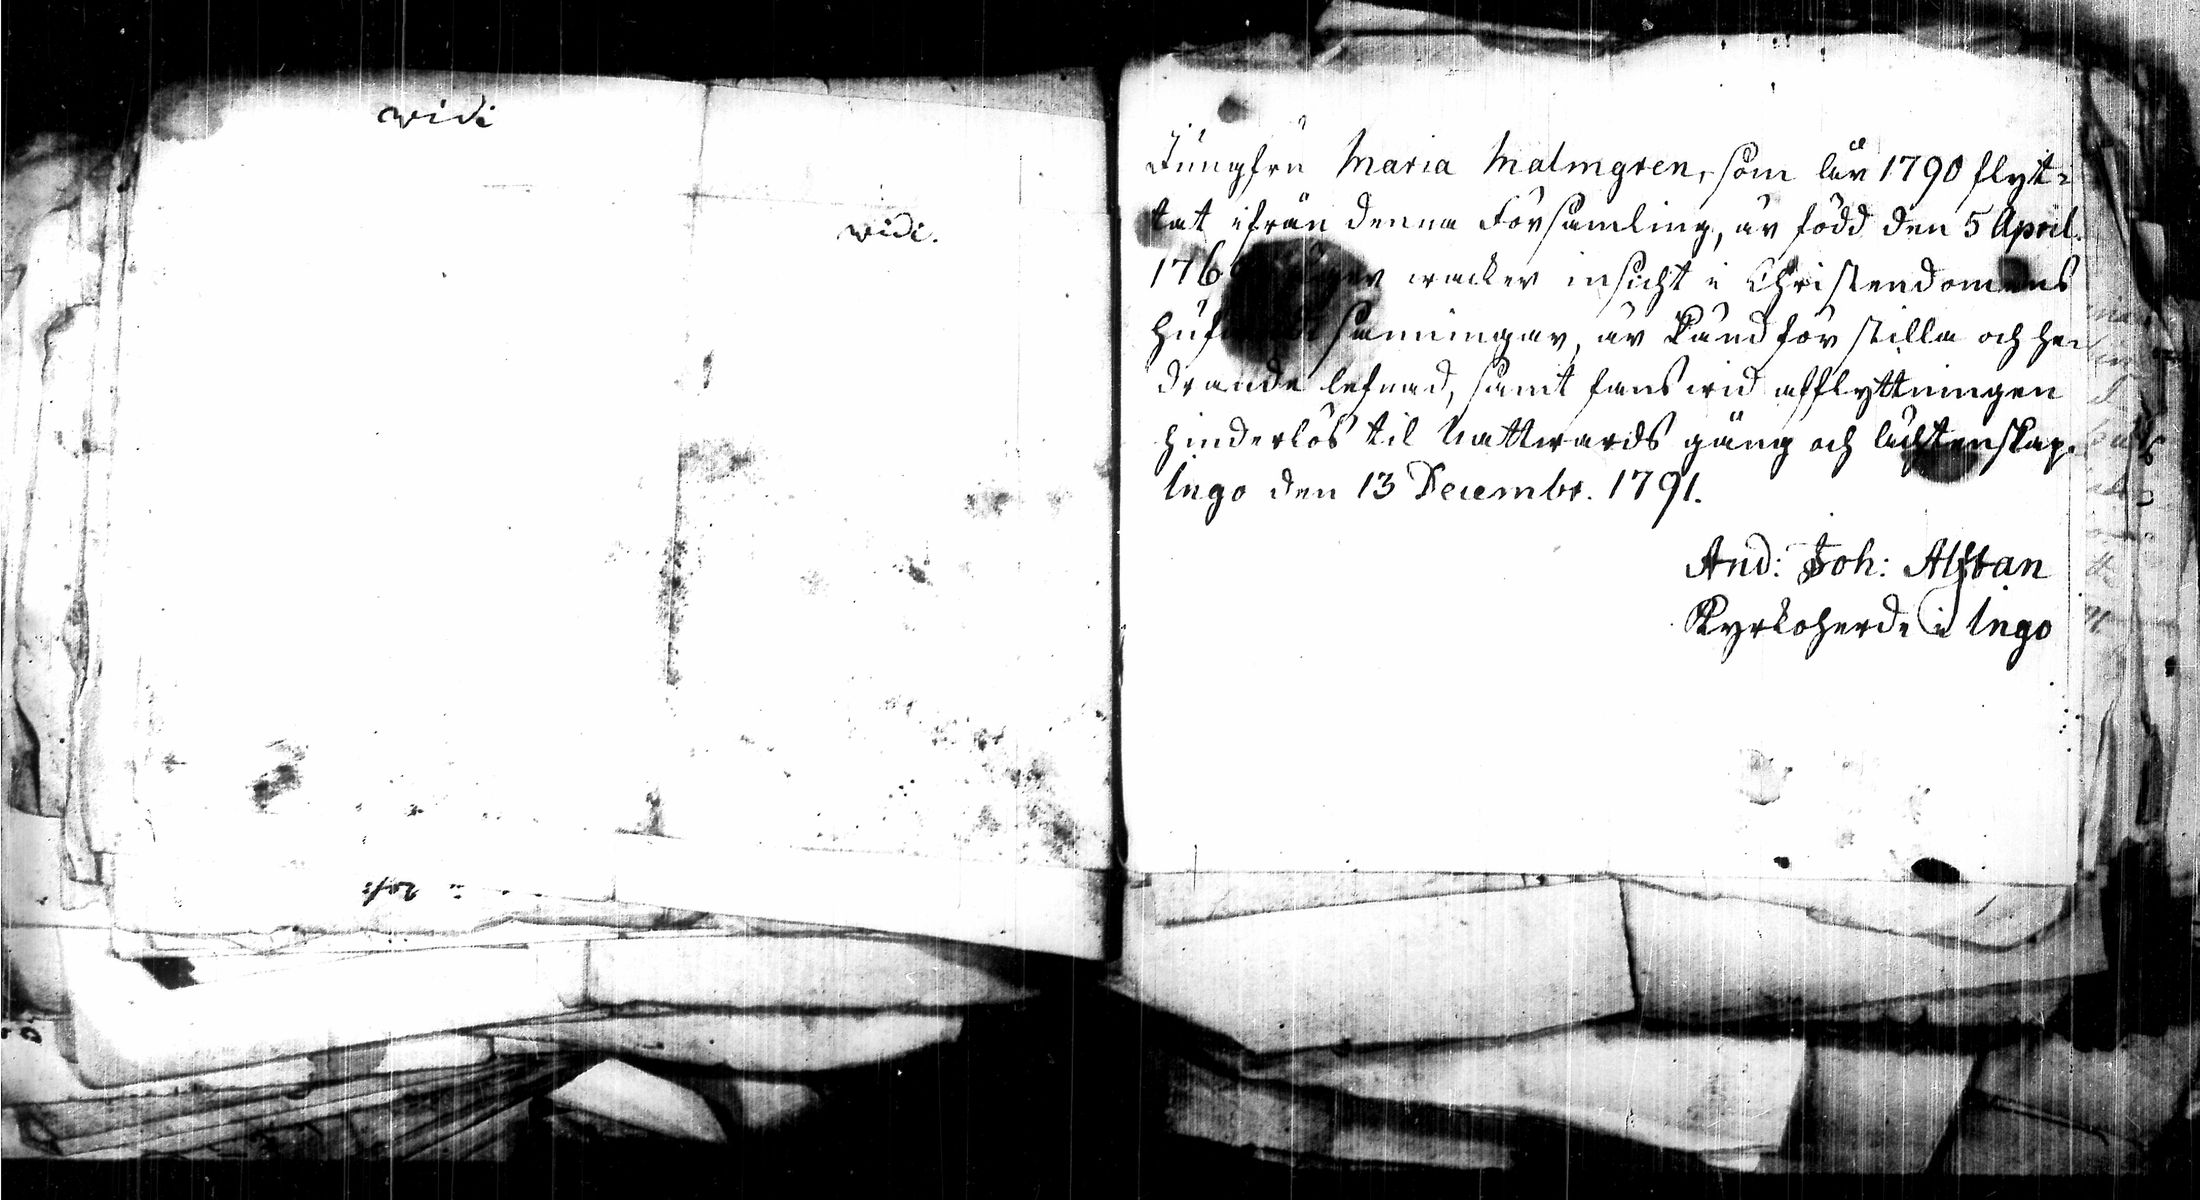 widi
widi.
Jungfru Maria Malmgren, som år 1790 flyt=
tat ifrån denna Församling, är född den 5 April.
176 äger wacker insicht i Christendomens
sanningar, är känd för stilla och he=
drande lefnad, samt fans wid afflyttningen
hinderlös til Nattwards gång och ächtenskap.
Ingo den 13 Decembr. 1791.
And: Joh: Alftan
Kyrkoherde i Ingo